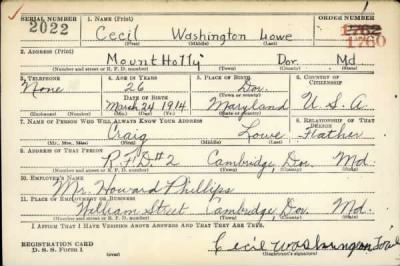 SERIAL NUMBER 1. NAME (Print) ORDER NUMBER
2022 Cecil Washington Lowe 1762
1760
(First) (Middle) (Last)
2. ADDRESS (Print)
Mount Holly Dor. Md
(Number and street or R. F. D. number) (Town) (County) (State)
3. TELEPHONE 4. AGE IN YEARS 5. PLACE OF BIRTH 6. COUNTRY OF CITIZENSHIP
None 26 Dor.
DATE OF BIRTH (Town or county)
March 24 1914 Maryland U. S. A
(Exchange) (Number) (Mo.) (Day) (Yr.) (State or country)
7. NAME OF PERSON WHO WILL ALWAYS KNOW YOUR ADDRESS 8. RELATIONSHIP OF THAT PERSON
Craig Lowe Father
(Mr., Mrs., Miss) (First) (Middle) (Last)
9. ADDRESS OF THAT PERSON
R.F.D.#2 Cambridge, Dor. Md.
(Number and street or R. F. D. number) (Town) (County) (State)
10. EMPLOYER'S NAME
Mr. Howard Phillips
11. PLACE OF EMPLOYMENT OR BUSINESS
William Street Cambridge, Dor. Md.
(Number and street or R. F. D. number) (Town) (County) (State)
I AFFIRM THAT I HAVE VERIFIED ABOVE ANSWERS AND THAT THEY ARE TRUE.
REGISTRATION CARD
D. S. S. Form 1 Cecil Washington Lowe
(Registrant's signature)